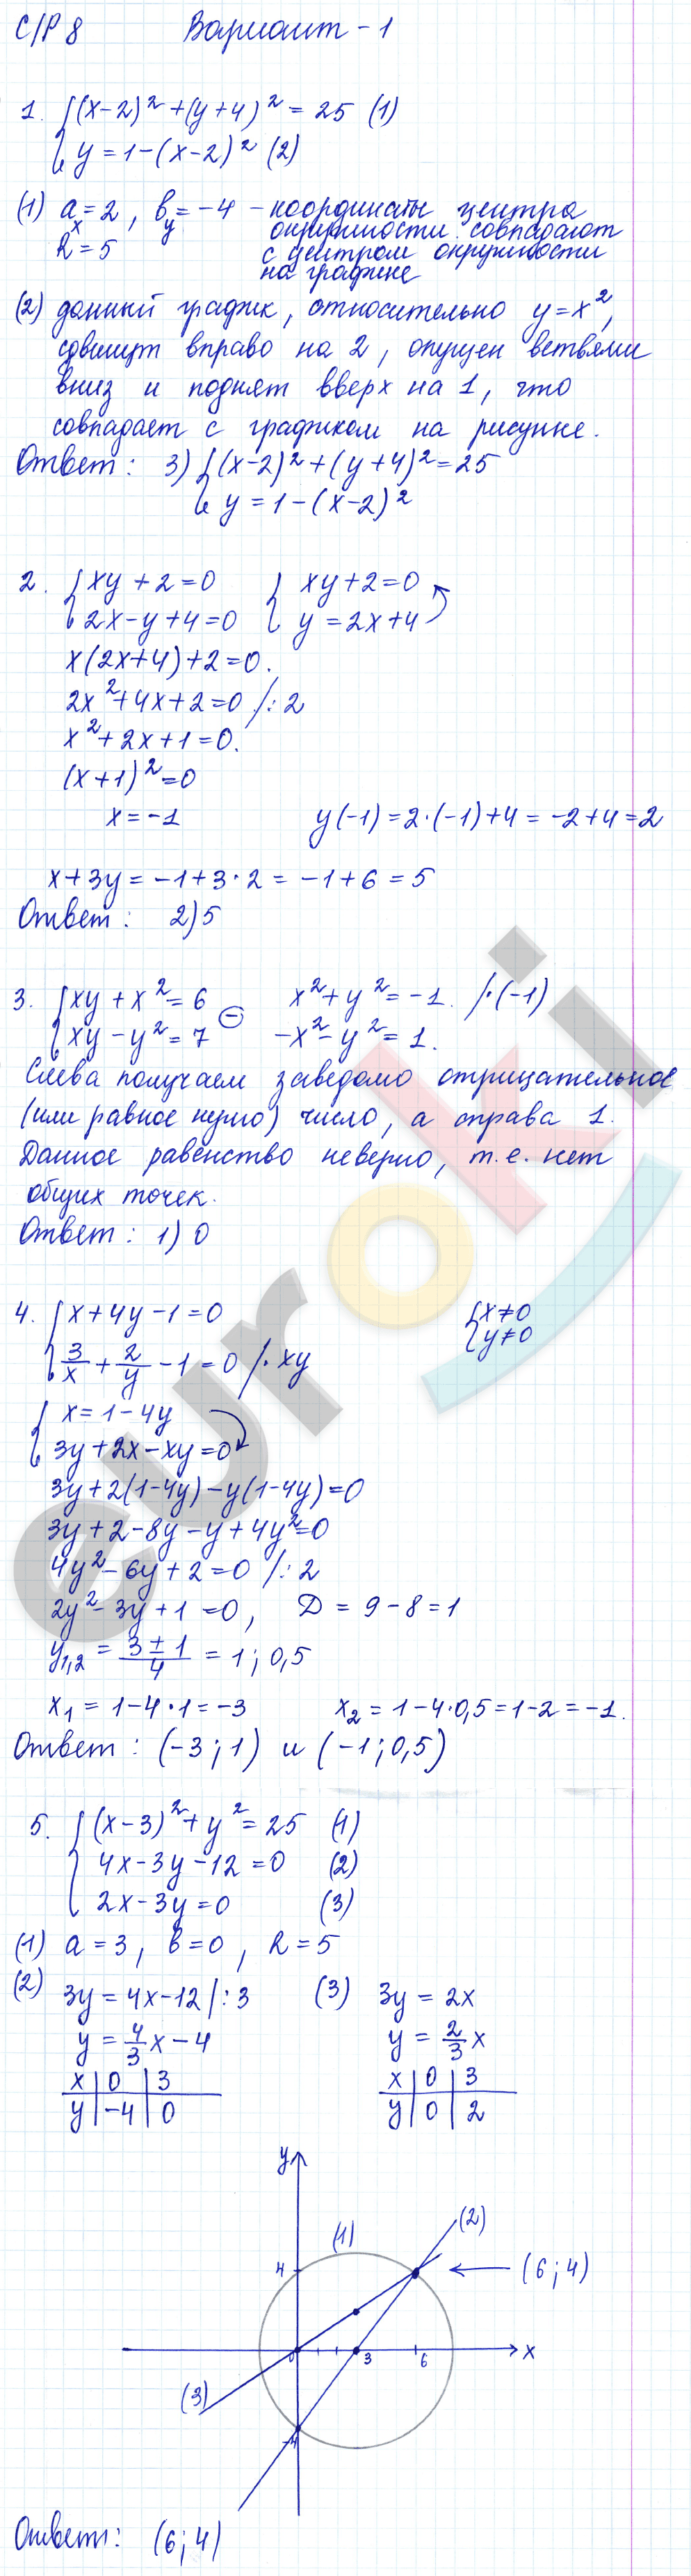 С/Р 8 Вариант - 1
1. { (x-2)² + (y+4)² = 25 (1)
y = 1-(x-2)² (2)
(1) aₓ = 2, b_y = -4 - координаты центра
окружности совпадают
R = 5 с центром окружности
на графике
(2) данный график, относительно y = x²,
сдвинут вправо на 2, опущен ветвями
вниз и поднят вверх на 1, что
совпадает с графиком на рисунке.
Ответ: 3) { (x-2)² + (y+4)² = 25
y = 1-(x-2)²
2. { xy + 2 = 0 { xy + 2 = 0
2x - y + 4 = 0 y = 2x + 4
x(2x+4) + 2 = 0.
2x² + 4x + 2 = 0 /: 2
x² + 2x + 1 = 0.
(x+1)² = 0
x = -1 y(-1) = 2·(-1) + 4 = -2 + 4 = 2
x + 3y = -1 + 3·2 = -1 + 6 = 5
Ответ: 2) 5
3. { xy + x² = 6 ⊖ x² + y² = -1. /·(-1)
xy - y² = 7 -x² - y² = 1.
Слева получаем заведомо отрицательное
(или равное нулю) число, а справа 1.
Данное равенство неверно, т.е. нет
общих точек.
Ответ: 1) 0
4. { x + 4y - 1 = 0 { x ≠ 0
3/x + 2/y - 1 = 0 /· xy y ≠ 0
{ x = 1 - 4y
3y + 2x - xy = 0
3y + 2(1-4y) - y(1-4y) = 0
3y + 2 - 8y - y + 4y² = 0
4y² - 6y + 2 = 0 /: 2
2y² - 3y + 1 = 0, D = 9 - 8 = 1
y₁,₂ = (3 ± 1)/4 = 1; 0,5
x₁ = 1 - 4·1 = -3 x₂ = 1 - 4·0,5 = 1 - 2 = -1.
Ответ: (-3; 1) и (-1; 0,5)
5. { (x-3)² + y² = 25 (1)
4x - 3y - 12 = 0 (2)
2x - 3y = 0 (3)
(1) a = 3, b = 0, R = 5
(2) 3y = 4x - 12 |: 3 (3) 3y = 2x
y = 4/3 x - 4 y = 2/3 x
x | 0 | 3 x | 0 | 3
y | -4 | 0 y | 0 | 2
y
(1) (2)
4 (6; 4)
0 3 6 x
(3)
-4
Ответ: (6; 4)
euroki